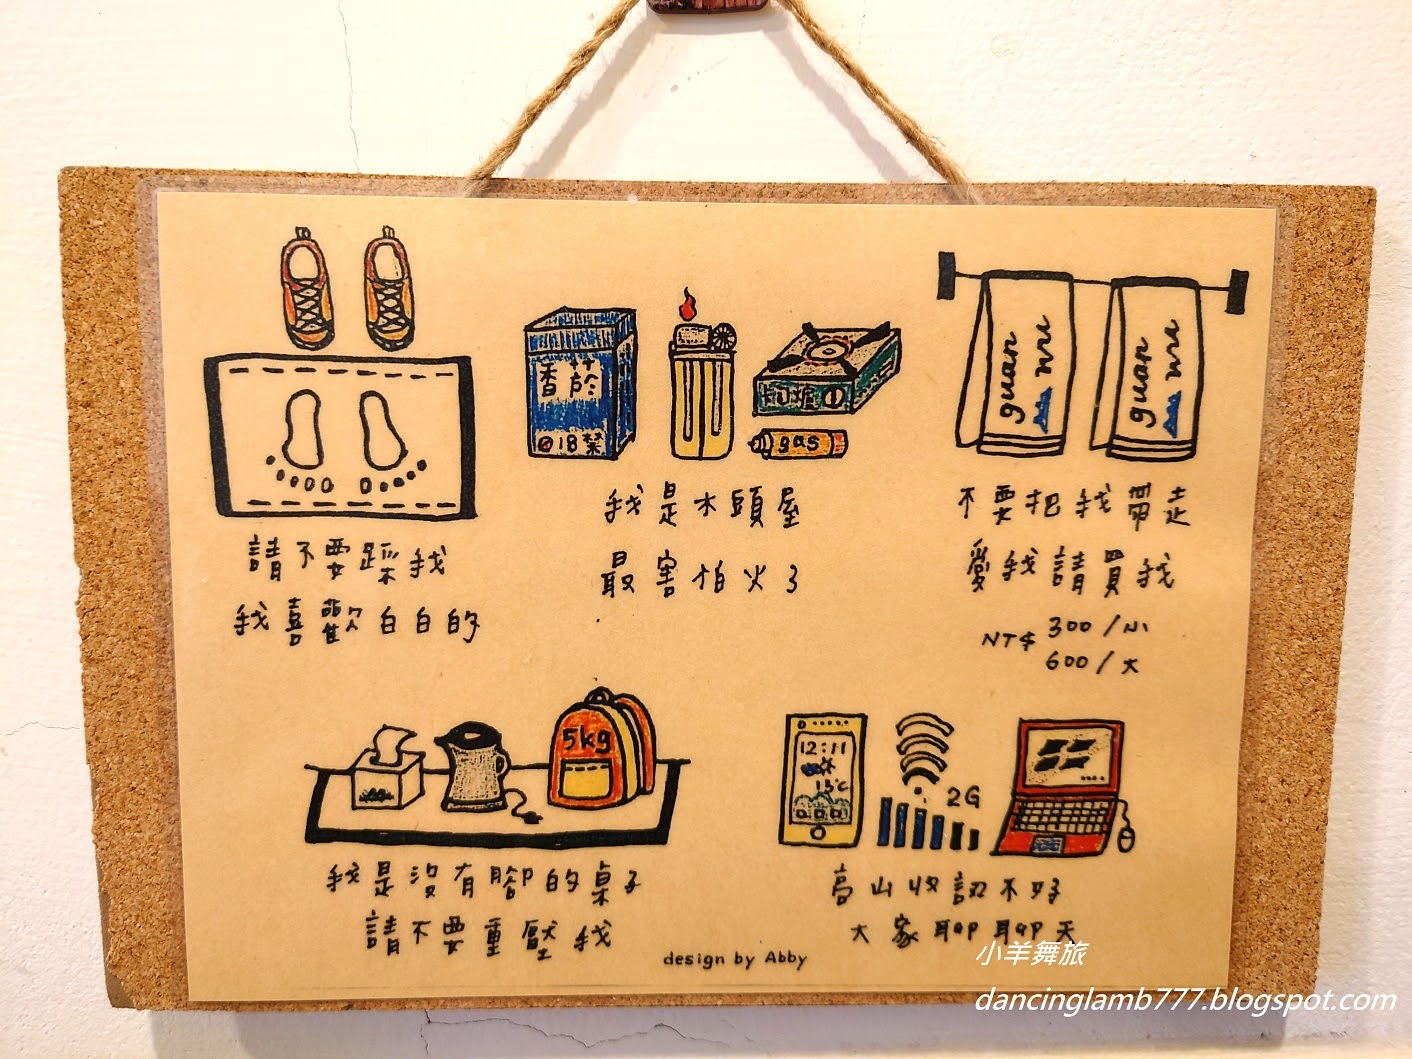 請不要踩我
我喜歡白白的
香菸
18禁
卡式爐
gas
我是木頭屋
最害怕火了
guan wu
guan wu
不要把我帶走
愛我請買我
NT$ 300/小
600/大
5kg
我是沒有腳的桌子
請不要重壓我
12:11
13°C
2G
高山收訊不好
大家聊聊天
design by Abby
小羊舞旅
dancinglamb777.blogspot.com